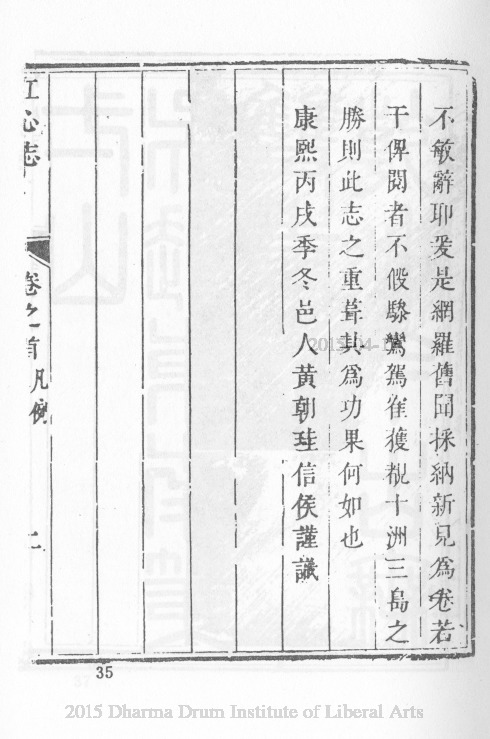 不敏辭耶爰是網羅舊聞採納新見爲卷若
干俾閱者不假驂鸞駕隺獲覩十洲三島之
勝則此志之重葺其爲功果何如也
康熙丙戌季冬邑人黄朝珪信侯謹識
江心志
卷之首凡例
二
35
2015 Dharma Drum Institute of Liberal Arts